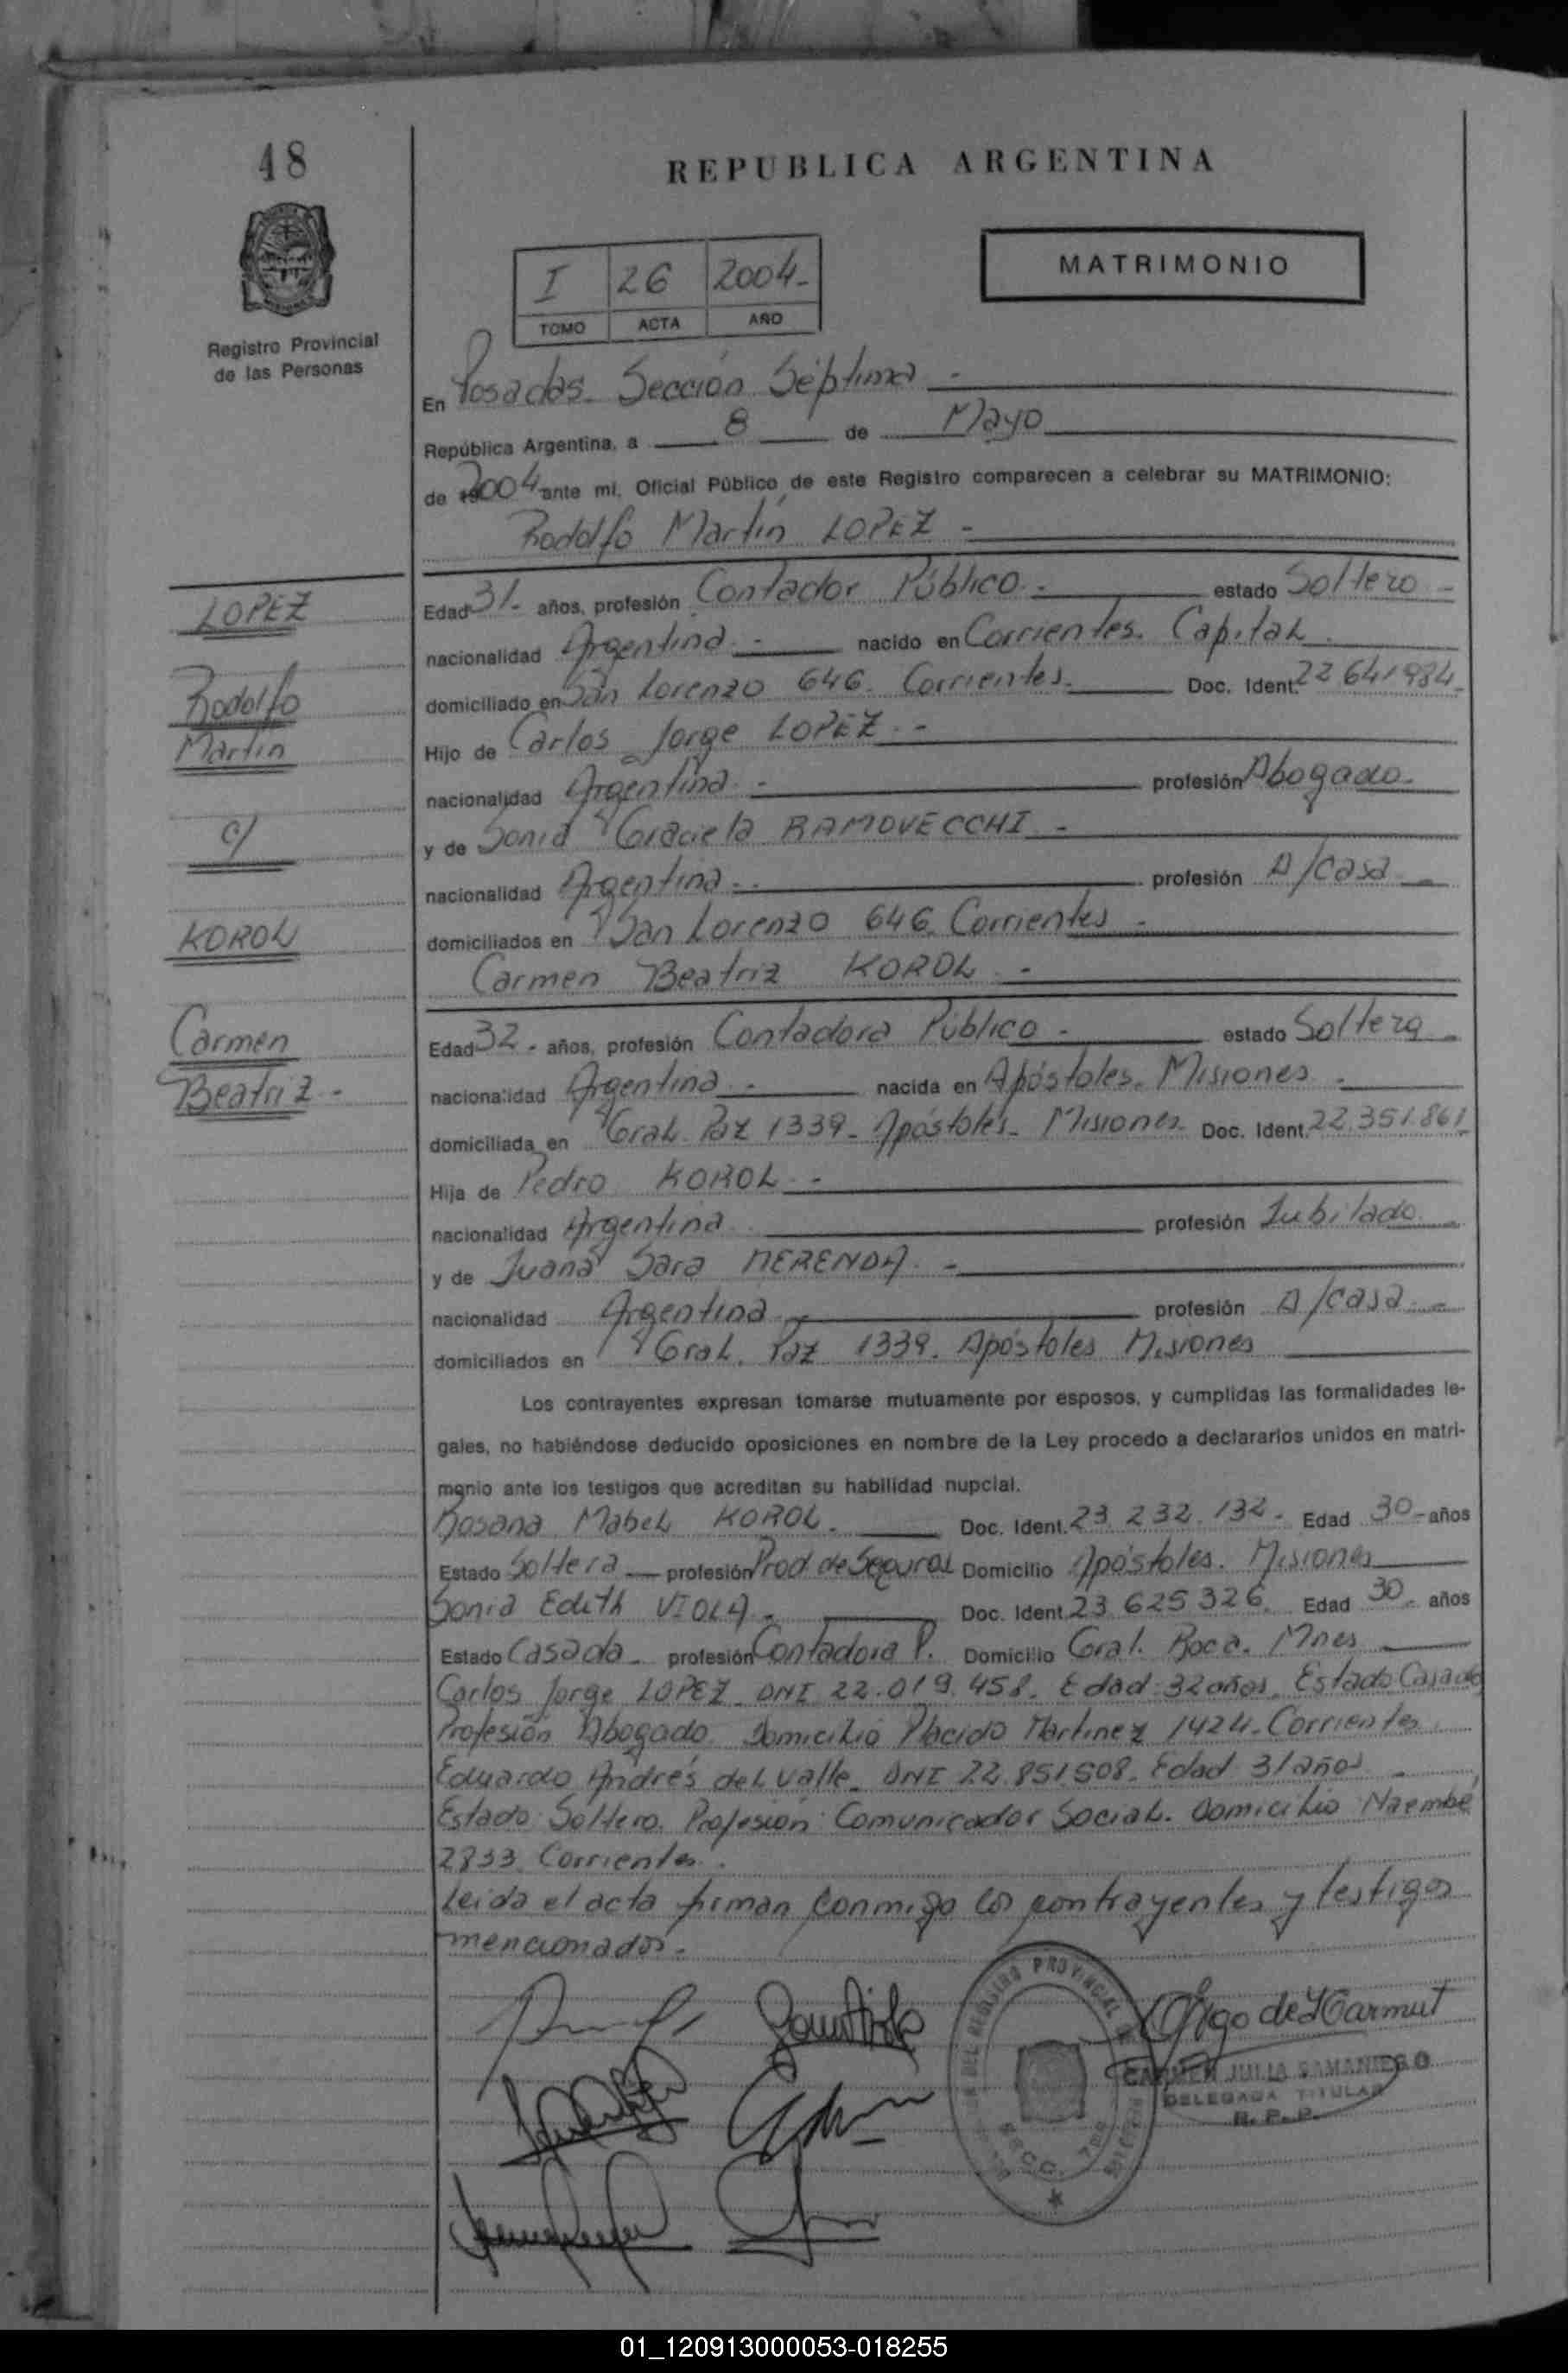 48
REPUBLICA ARGENTINA
I 26 2004-
TOMO ACTA AÑO
MATRIMONIO
Registro Provincial
de las Personas
En Posadas. Sección Séptima -
República Argentina, a 8 de Mayo
de 2004 ante mi, Oficial Público de este Registro comparecen a celebrar su MATRIMONIO:
Rodolfo Martín LOPEZ -
LOPEZ
Rodolfo
Martin
c/
KOROL
Carmen
Beatriz -
Edad 31- años, profesión Contador Público - estado Soltero -
nacionalidad Argentina - nacido en Corrientes. Capital
domiciliado en San Lorenzo 646. Corrientes. Doc. Ident. 22 641984.
Hijo de Carlos Jorge LOPEZ -
nacionalidad Argentina - profesión Abogado-
y de Sonia Graciela RAMOVECCHI -
nacionalidad Argentina - profesión A/casa
domiciliados en San Lorenzo 646 Corrientes -
Carmen Beatriz KOROL -
Edad 32- años, profesión Contadora Público - estado Soltera
nacionalidad Argentina - nacida en Apóstoles. Misiones -
domiciliada en Gral. Paz 1339- Apóstoles- Misiones Doc. Ident. 22.351.861
Hija de Pedro KOROL -
nacionalidad Argentina profesión Jubilado
y de Juana Sara MERENDA -
nacionalidad Argentina profesión A/casa -
domiciliados en Gral. Paz 1339. Apóstoles Misiones
Los contrayentes expresan tomarse mutuamente por esposos, y cumplidas las formalidades le-
gales, no habiéndose deducido oposiciones en nombre de la Ley procedo a declararlos unidos en matri-
monio ante los testigos que acreditan su habilidad nupcial.
Rosana Mabel KOROL. Doc. Ident. 23.232.132- Edad 30- años
Estado Soltera profesión Prod de Seguros Domicilio Apóstoles. Misiones
Sonia Edith VIOLA. Doc. Ident. 23 625 326. Edad 30- años
Estado Casada- profesión Contadora P. Domicilio Gral. Roca. Mnes
Carlos Jorge LOPEZ- DNI 22.019.458. Edad 32 años. Estado Casado
Profesión Abogado. Domicilio Placido Martinez 1424. Corrientes.
Eduardo Andrés del Valle. DNI 22.851508. Edad 31 años -
Estado Soltero. Profesión Comunicador Social. Domicilio Naembé
2833. Corrientes.
Leída el acta firman conmigo los contrayentes y testigos
mencionados.
DEL REGISTRO PROVINCIAL
SECC. 7ma
CARMEN JULIA SAMANIEGO
DELEGADA TITULAR
R. P. P.
01_120913000053-018255